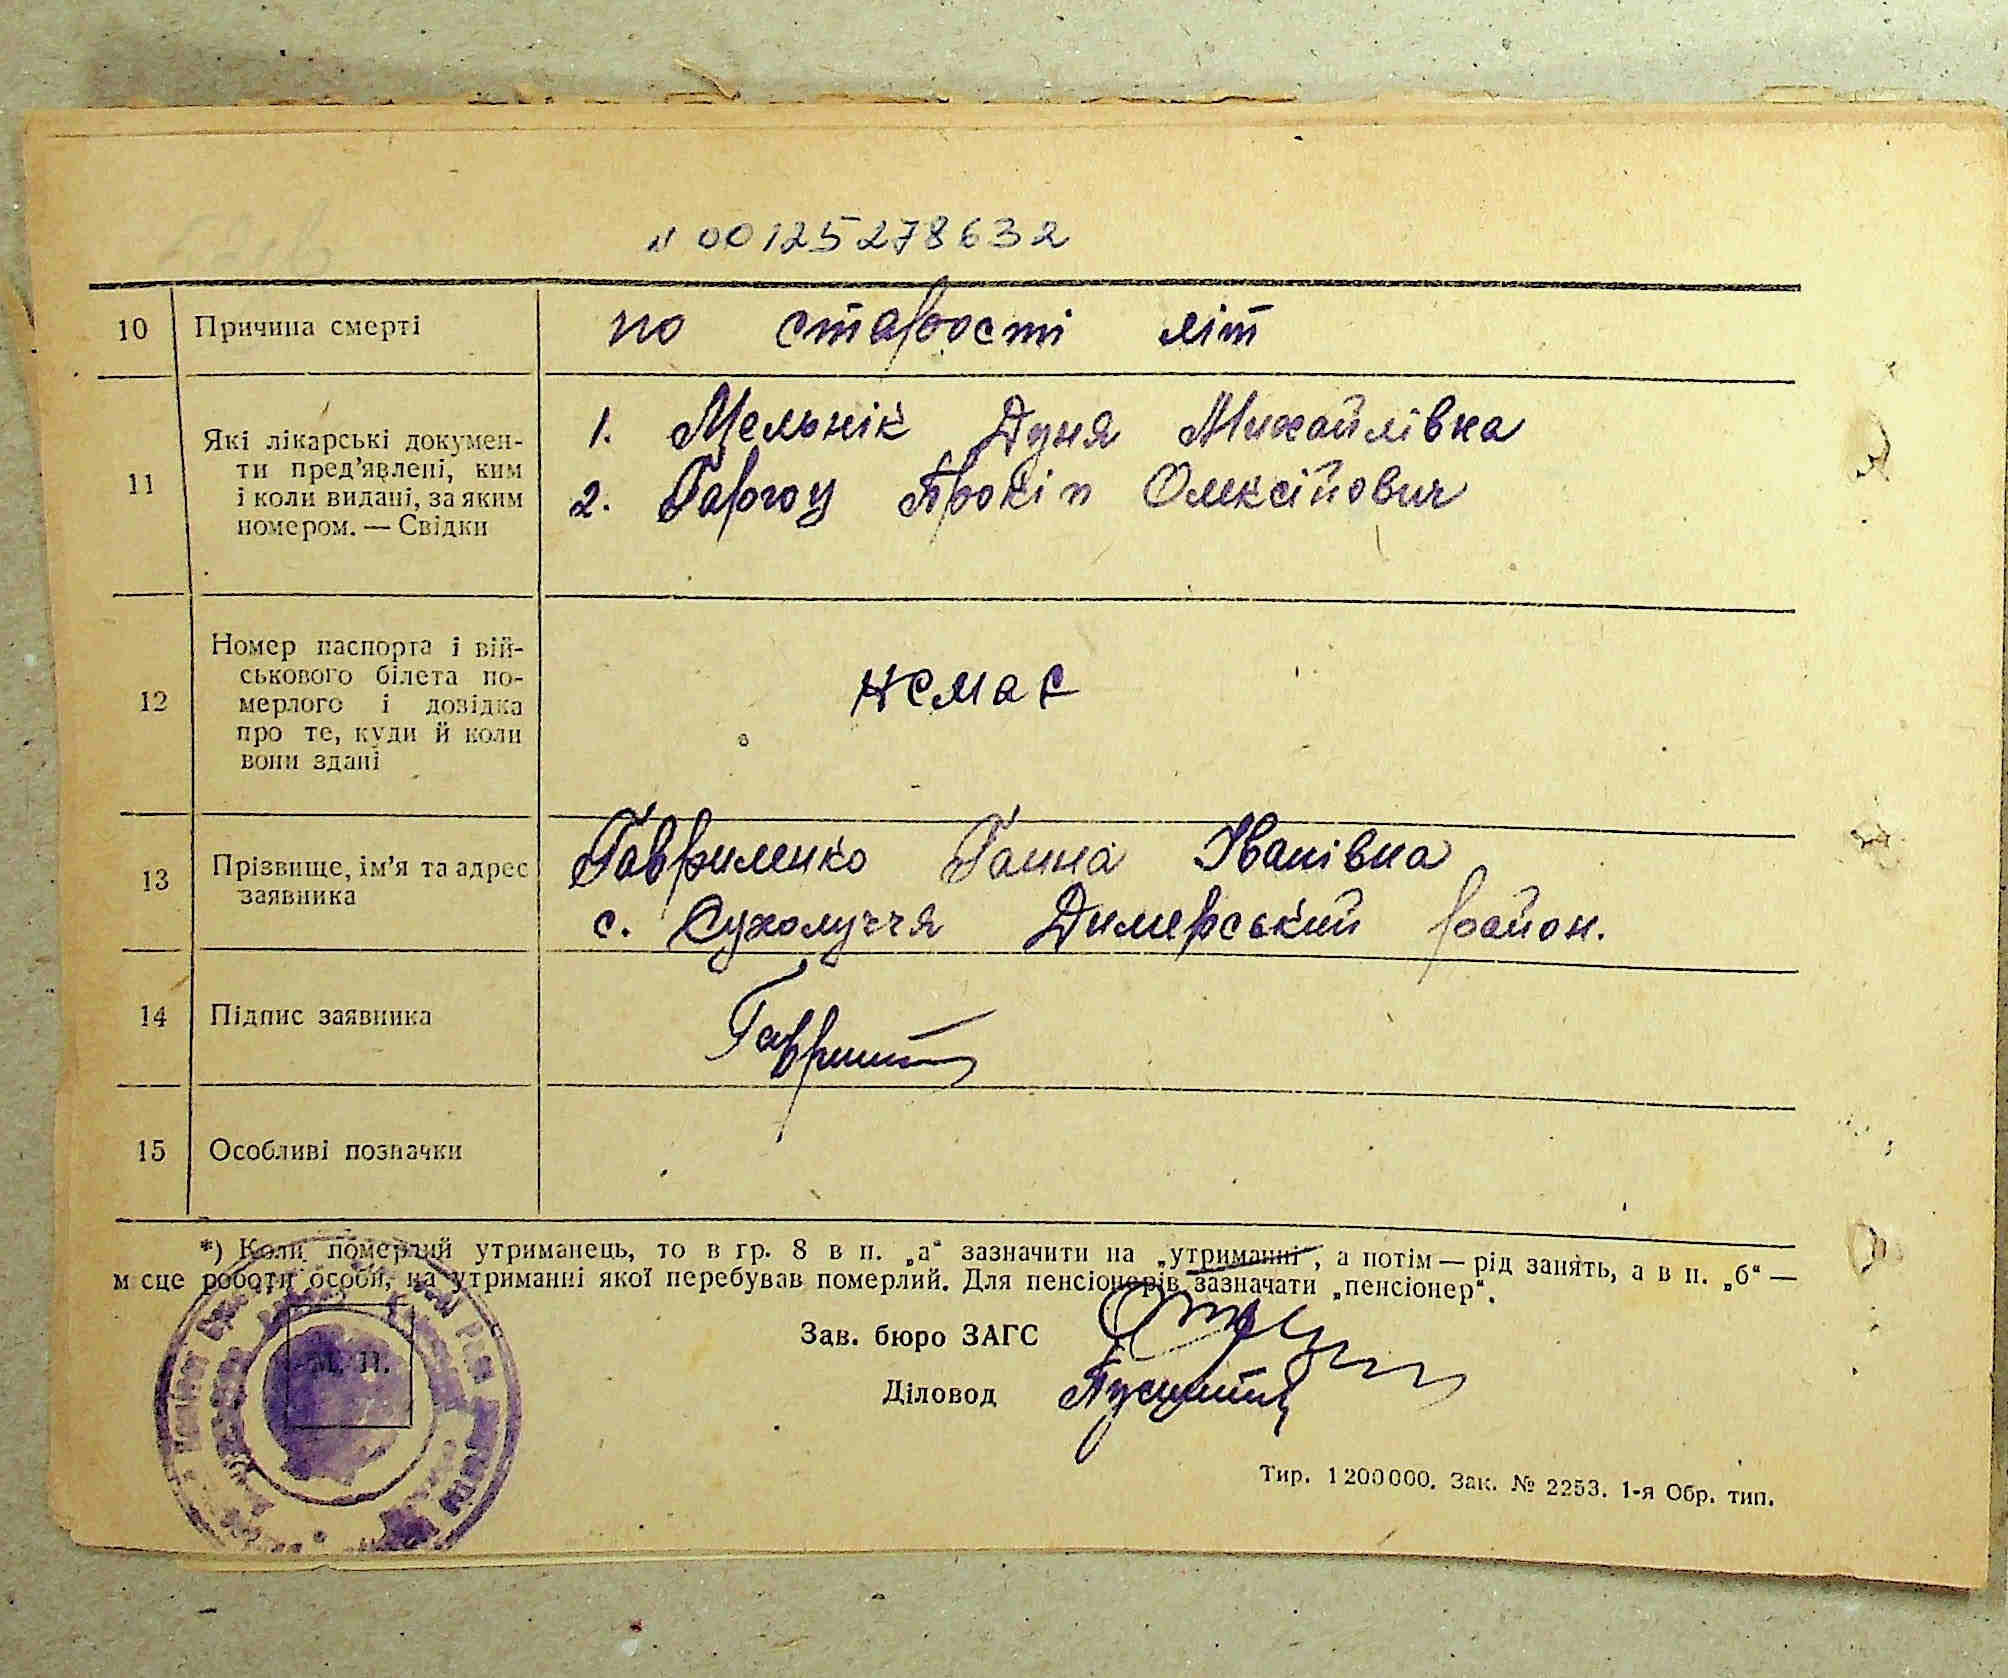 N 00125278632
10 Причина смерті по старості літ
11 Які лікарські докумен-
ти пред'явлені, ким
і коли видані, за яким
номером. — Свідки
1. Мельнік Дуня Михайлівна
2. Прокіп Олексійович
12 Номер паспорта і вій-
ськового білета по-
мерлого і довідка
про те, куди й коли
вони здані
немає
13 Прізвище, ім'я та адрес
заявника
Гавриленко Ганна Іванівна
с. Сухолуччя Димерський район.
14 Підпис заявника
15 Особливі позначки
*) Коли померлий утриманець, то в гр. 8 в п. „а“ зазначити на „утриманні“, а потім — рід занять, а в п. „б“ —
м сце роботи особи, на утриманні якої перебував померлий. Для пенсіонерів зазначати „пенсіонер“.
М. П.
Зав. бюро ЗАГС
Діловод
Тир. 1200000. Зак. № 2253. 1-я Обр. тип.